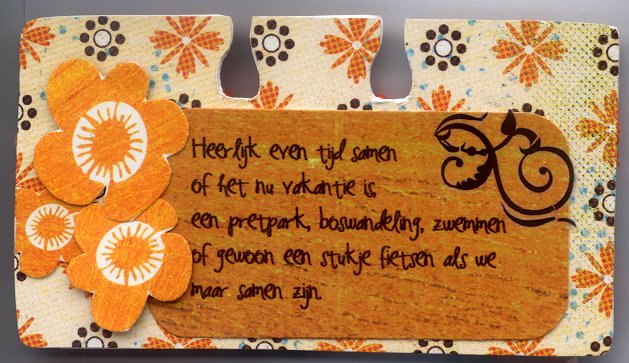 Heerlijk even tijd samen
of het nu vakantie is,
een pretpark, boswandeling, zwemmen
of gewoon een stukje fietsen als we
maar samen zijn.